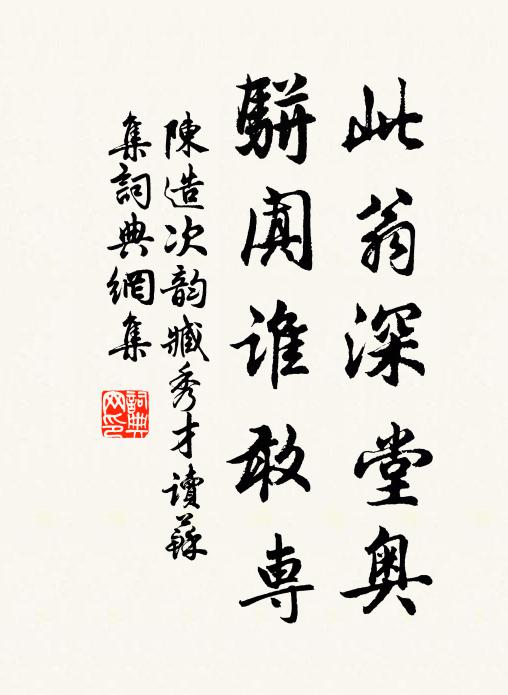 此翁深堂奥
駢闐谁敢専
陳造次韵臧秀才讀蘇
集詞典網集
詞典网印